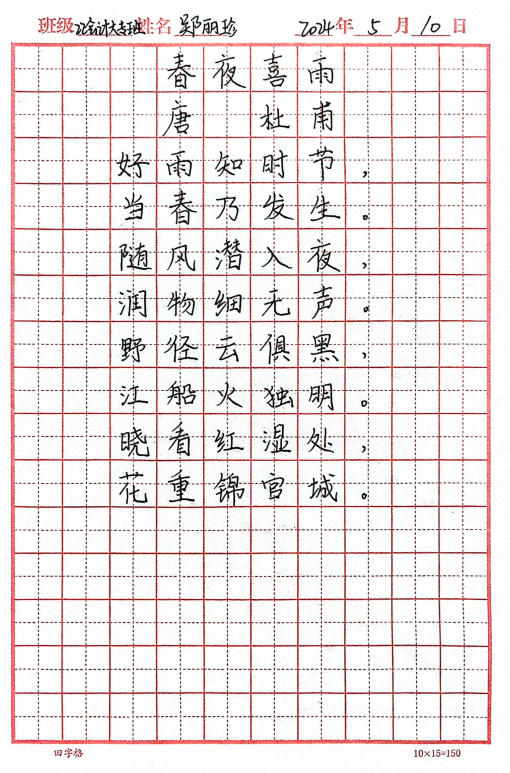 班级 22会计大专班 姓名 郑丽珍 2024年 5 月 10 日
春夜喜雨
唐 杜甫
好雨知时节，
当春乃发生。
随风潜入夜，
润物细无声。
野径云俱黑，
江船火独明。
晓看红湿处，
花重锦官城。
田字格 10×15=150